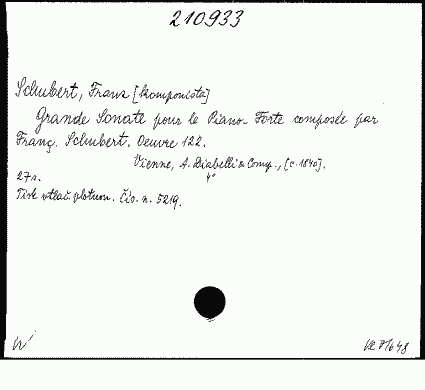 210933
Schubert, Franz [komponista]
Grande Sonate pour le Piano-Forte composée par
Franç. Schubert. Oeuvre 122.
Vienne, A. Diabelli & Comp., [c. 1840].
27 s. 4°
Tisk vtlač. plotnou. Čís. n. 5219.
W